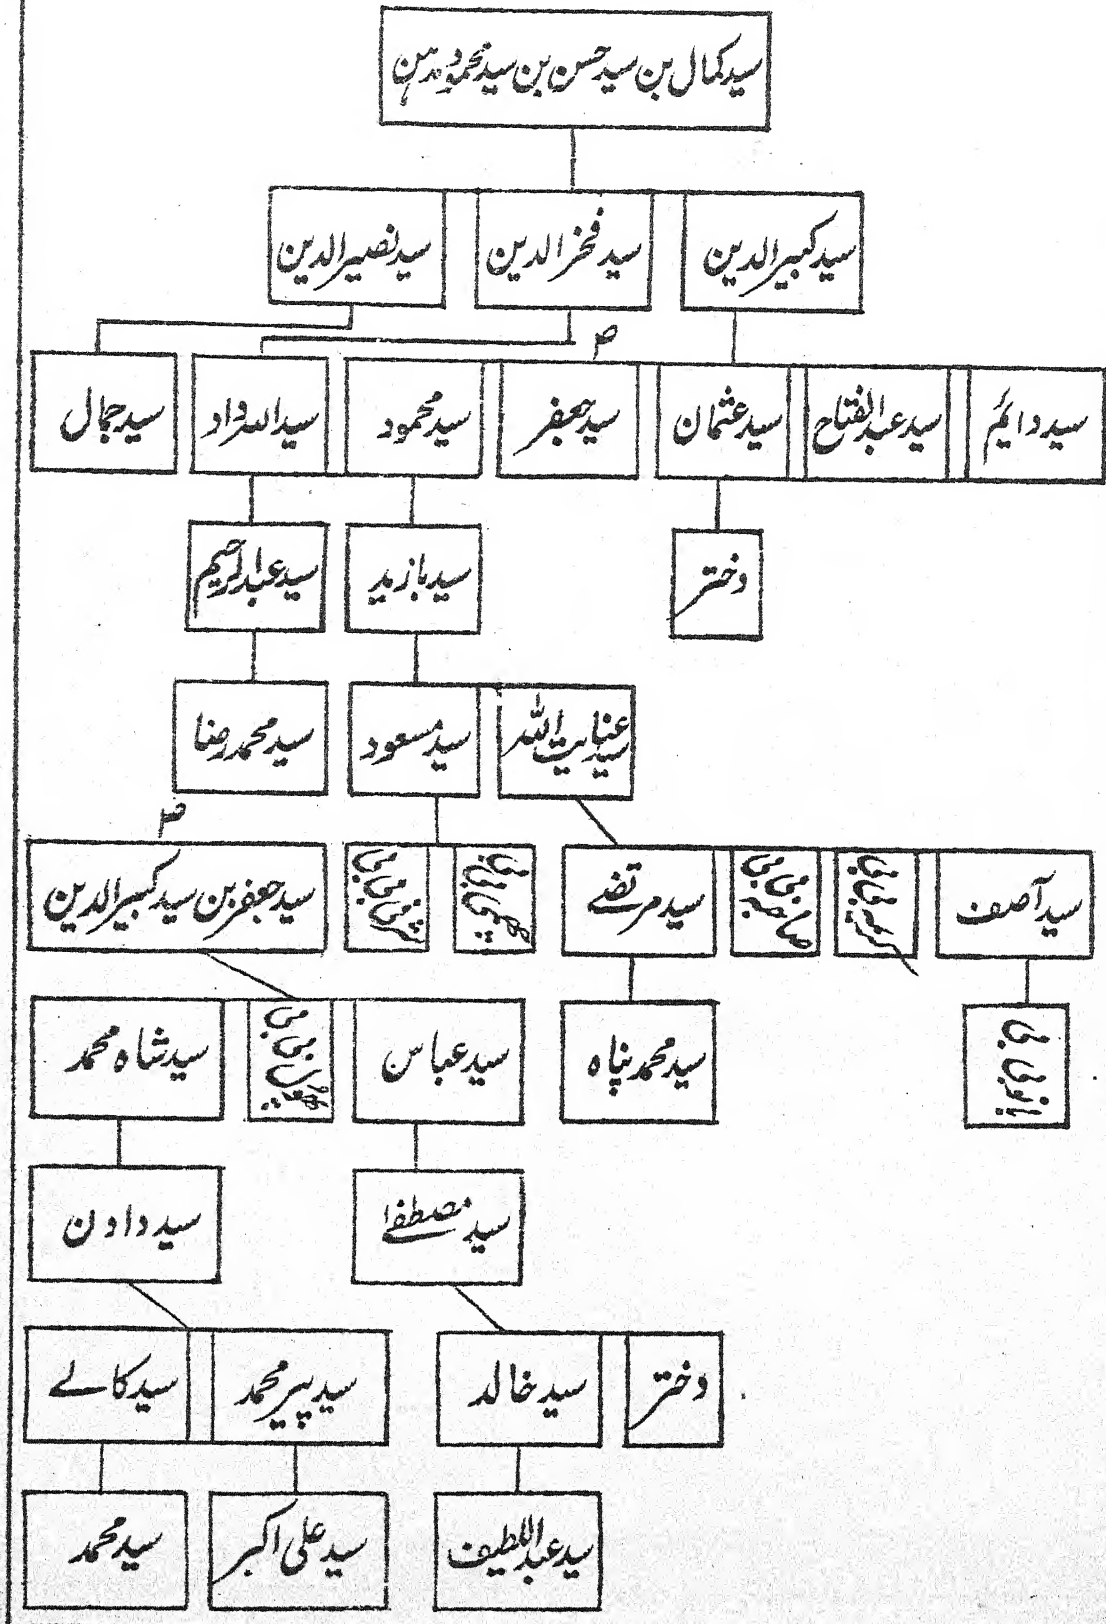 سید کمال بن سید حسن بن سید محمود بدہن
سید کبیر الدین
سید فخر الدین
سید نصیر الدین
ص
سید دائم
سید عبدالفتاح
سید عثمان
سید جعفر
سید محمود
سید اللہ داد
سید جمال
دختر
سید بازید
سید عبدالرحیم
سید عنایت اللہ
سید مسعود
سید محمد رضا
ص
سید آصف
بی بی
سید مرتضےٰ
بی بی
بی بی
سید جعفر بن سید کبیر الدین
صاحبہ بی بی
بانو بی بی
سید محمد پناہ
سید عباس
بی بی
سید شاہ محمد
سید مصطفےٰ
سید دادن
دختر
سید خالد
سید پیر محمد
سید کالے
سید عبداللطیف
سید علی اکبر
سید محمد